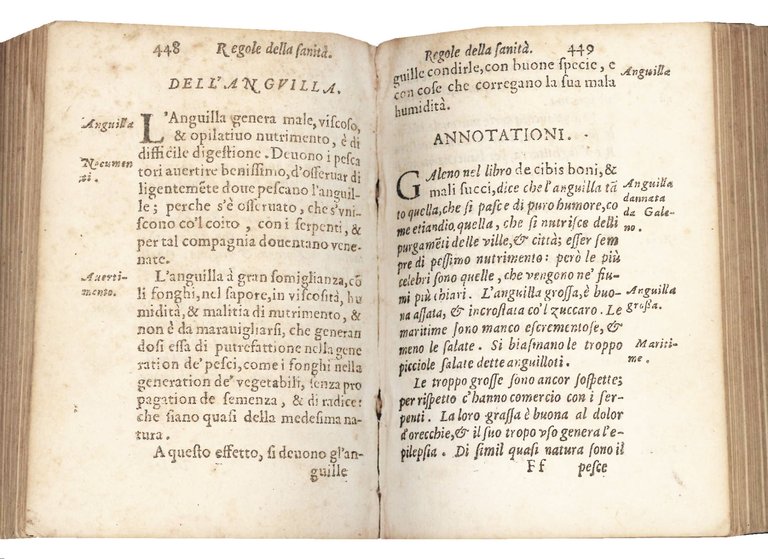 448 Regole della ſanità.
DELL'ANGVILLA.
Anguilla
L'Anguilla genera male, viſcoſo,
& opilatiuo nutrimento, è di
Nocumen
ti.
difficile digeſtione. Deuono i peſca
tori auertire beniſsimo, d'oſſeruar di
ligentemẽte doue peſcano l'anguil-
le; perche s'è oſſeruato, che s'vni-
ſcono co'l coito, con i ſerpenti, &
per tal compagnia douentano vene-
nate.
Auerti-
mento.
L'anguilla à gran ſomiglianza, cõ
li fonghi, nel ſapore, in viſcoſità, hu
midità, & malitia di nutrimento, &
non è da marauigliarſi, che generan
doſi eſſa di putrefattione nella gene
ration de' peſci, come i fonghi nella
generation de' vegetabili, ſenza pro
pagation de ſemenza, & di radice:
che ſiano quaſi della medeſima na-
tura.
A queſto effetto, ſi deuono gl'an-
guille
Regole della ſanità. 449
guille condirle, con buone ſpecie, e
Anguilla
con coſe che corregano la ſua mala
humidità.
ANNOTATIONI.
GAleno nel libro de cibis boni, &
mali ſucci, dice che l'anguilla tã
Anguilla
dannata
da Gale-
no.
to quella, che ſi paſce di puro humore, co
me etiandio quella, che ſi nutriſce delli
purgamẽti delle ville, & città; eſſer ſem
pre di peſsimo nutrimento: però le più
celebri ſono quelle, che vengono ne' fiu-
mi più chiari. L'anguilla groſſa, è buo-
Anguilla
groſſa.
na aſſata, & incroſtata co'l zuccaro. Le
maritime ſono manco eſcrementoſe, &
meno le ſalate. Si biaſmano le troppo
Mariti-
me.
picciole ſalate dette anguilloti.
Le troppo groſſe ſono ancor ſoſpette;
per riſpetto c'hanno comercio con i ſer-
penti. La loro graſſa è buona al dolor
d'orecchie, & il ſuo tropo vſo genera l'e-
pilepſia. Di ſimil quaſi natura ſono il
Ff peſce